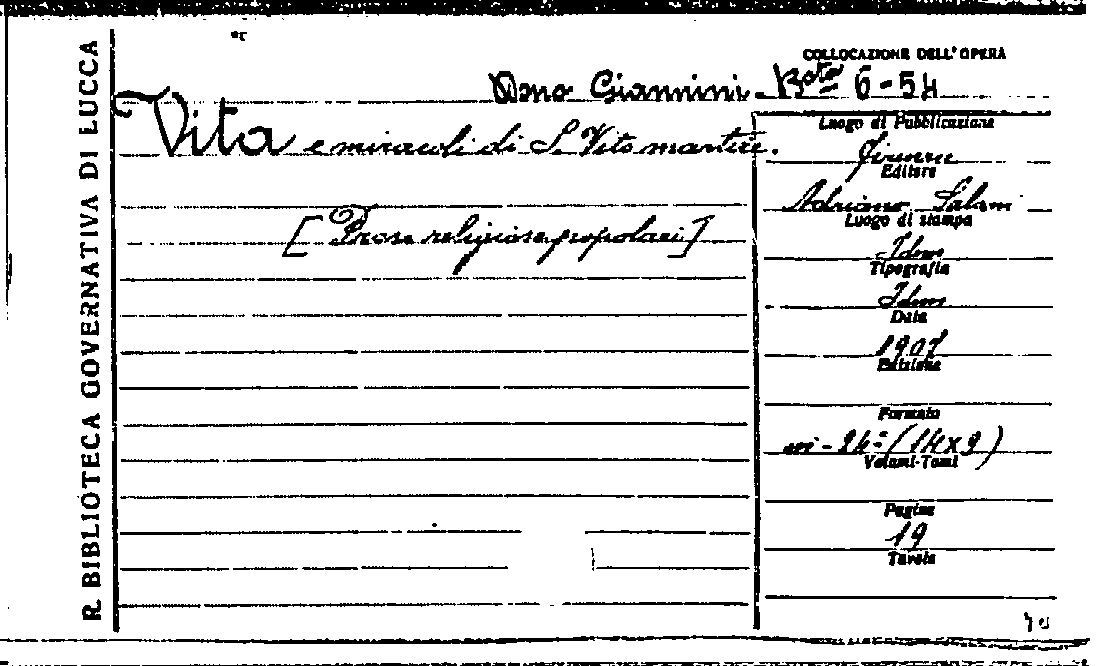 R. BIBLIOTECA GOVERNATIVA DI LUCCA
COLLOCAZIONE DELL'OPERA
Dono Giannini - Bta 6-54
Vita e miracoli di S. Vito martire.
[Prose religiose popolari]
Luogo di Pubblicazione
Firenze
Editore
Adriano Salani
Luogo di stampa
Idem
Tipografia
Idem
Data
1907
Edizione
Formato
in-24° (14x9)
Volumi-Tomi
Pagine
19
Tavole